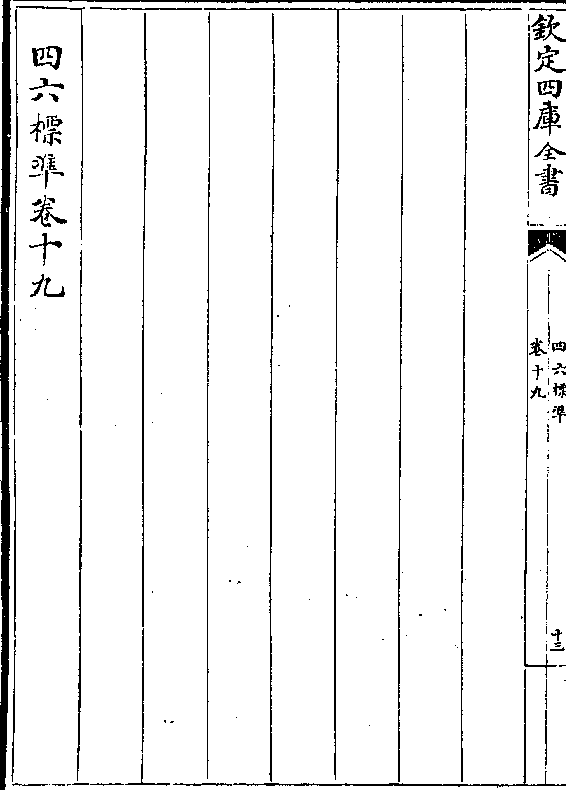 欽定四庫全書
四六標準
卷十九
十三
四六標準卷十九